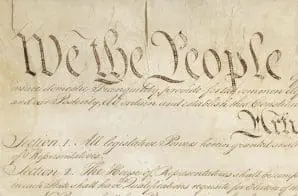 We the People
insure domestic Tranquility, provide for the common
and our Posterity, do ordain and establish this Constitution
Arti
Section. 1. All legislative Powers herein granted shall
of Representatives.
Section. 2. The House of Representatives shall be comp
in each State shall have Qualifications requisite for Electors of